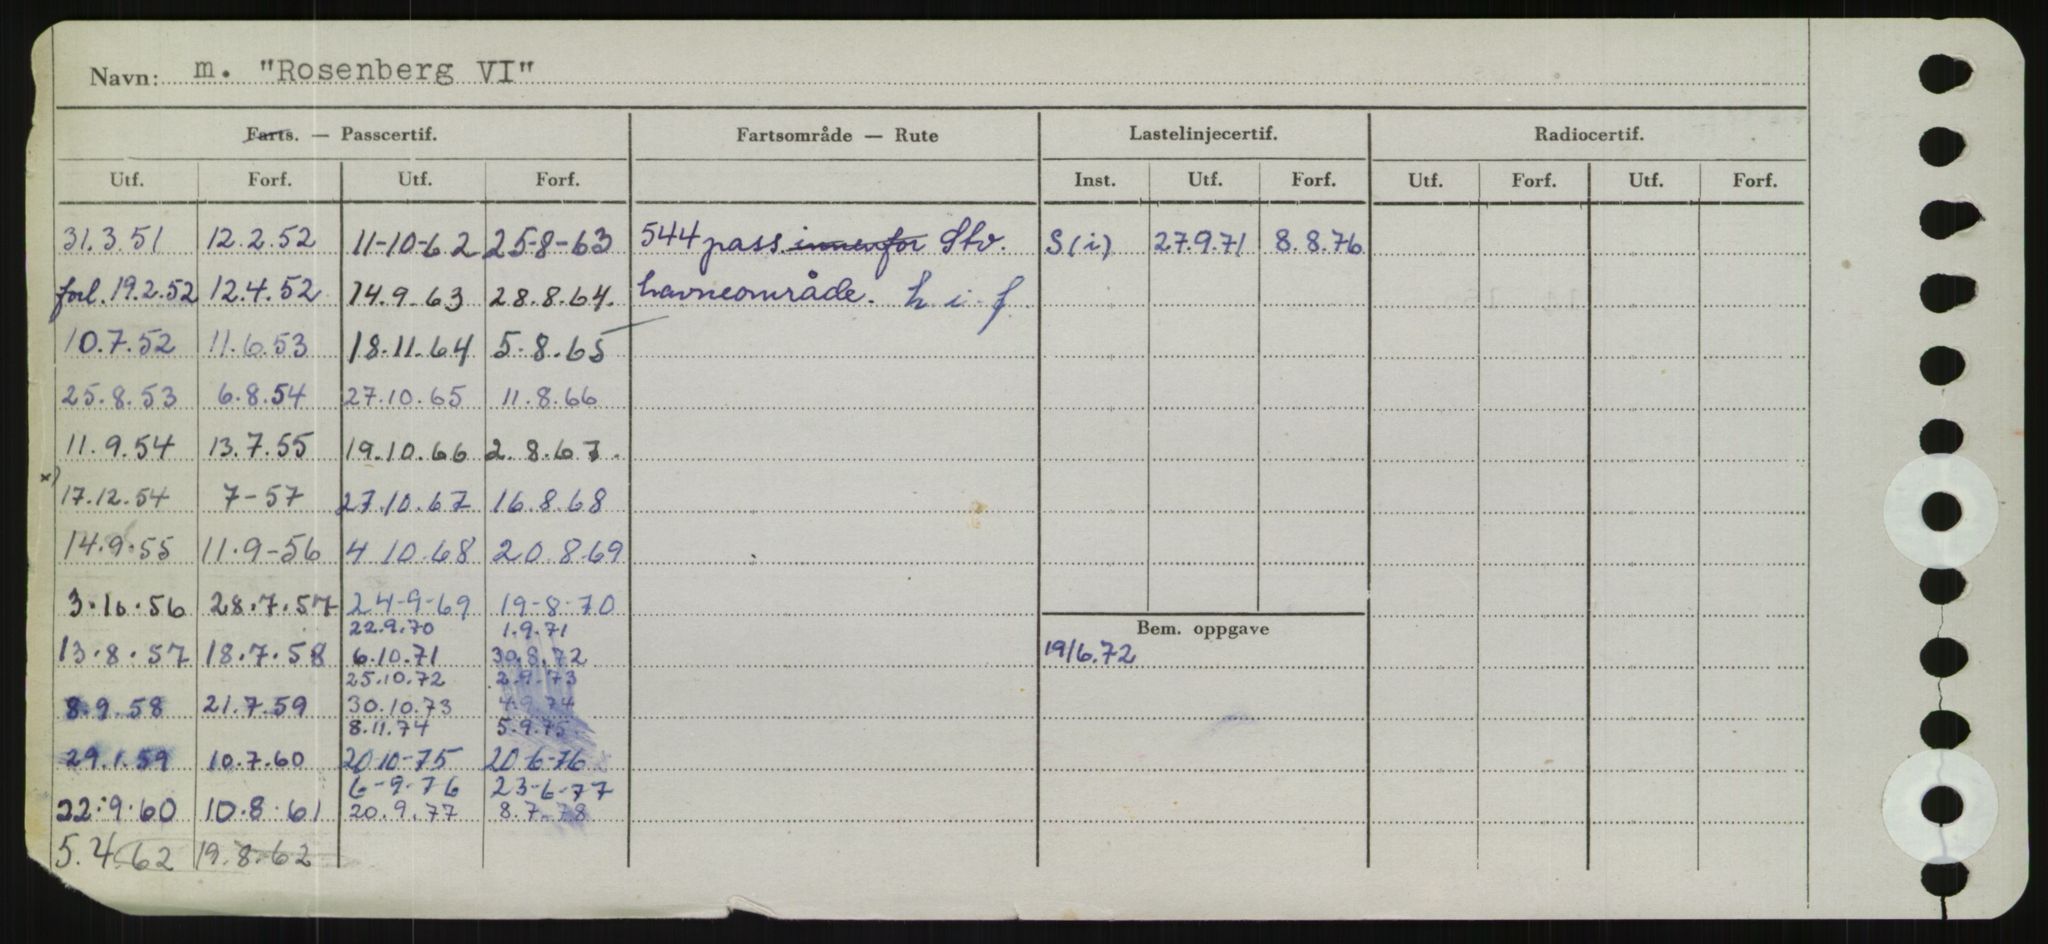 Navn: m. "Rosenberg VI"
Farts. — Passcertif. Fartsområde — Rute Lastelinjecertif. Radiocertif.
Utf. Forf. Utf. Forf. Inst. Utf. Forf. Utf. Forf. Utf. Forf.
31.3.51 12.2.52 11-10-62 25-8-63 544 pass. innenfor Stv. S(i) 27.9.71 8.8.76
forl. 19.2.52 12.4.52 14.9.63 28.8.64. havneområde. h.i.f.
10.7.52 11.6.53 18.11.64 5.8.65
25.8.53 6.8.54 27.10.65 11.8.66
11.9.54 13.7.55 19.10.66 2.8.67.
x) 17.12.54 7-57 27.10.67 16.8.68
14.9.55 11.9-56 4.10.68 20.8.69
3.10.56 28.7.57 24-9-69 19-8-70
22.9.70 1.9.71 Bem. oppgave
13.8.57 18.7.58 6.10.71 30.8.72 19/6.72
25.10.72 2.9.73
8.9.58 21.7.59 30.10.73 4.9.74
8.11.74 5.9.75
29.1.59 10.7.60 20.10-75 20-6-76
6-9-76 23-6-77
22.9.60 10.8.61 20.9.77 8.7.78
5.4.62 19.8.62